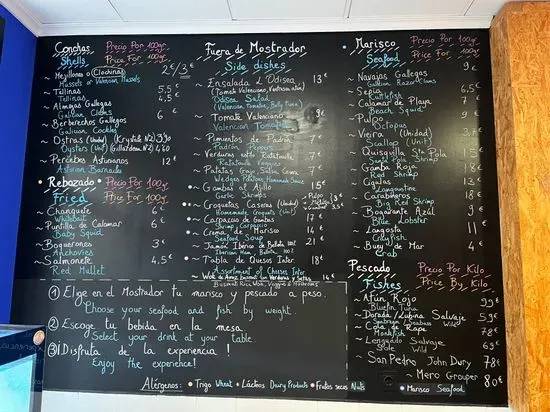 Conchas Precio Por 100gr.
Shells Price For 100gr.
~ Mejillones o Clochinas 2€/3€
Mussels or Valencian Mussels
~ Tellinas 5,5€
Tellinas 4,5€
~ Almejas Gallegas
Galician Clams 6€
~ Berberechos Gallegos
Galician Cockles
~ Ostras (Unidad)
Oysters (Unit)
~ Percebes Asturianos 12€
Asturian Barnacle
• Rebozado • Precio Por 100gr.
Fried Price For 100gr.
~ Chanquete 6€
Whitebait
~ Puntilla de Calamar 6€
Baby Squid
~ Boquerones 3€
Anchovies
~ Salmonete 4,5€
Red Mullet
Fuera de Mostrador
Side dishes
~ Ensalada L'Odisea 13€
(Tomate Valenciano, Ventresca atún)
Odisea Salad
(Valencian Tomato, Belly Tuna)
~ Tomate Valenciano 9€
Valencian Tomato
~ Pimientos de Padrón
Padrón Peppers
~ Verduras estilo Ratatouille
Ratatouille
~ Patatas Gajo Salsa Casera
Wedges Potatoes Homemade Sauce
• ~ Gambas al Ajillo 15€
Garlic Shrimps
~ Croquetas Caseras (Unidad)
Homemade Croquets (Unit)
~ Carpaccio de Gamba
Shrimp Carpaccio
• ~ Crema de Marisco 14€
Seafood Soup
~ Jamón Ibérico de Bellota 100%
Iberian Ham, Bellota 100%
• ~ Tabla de Quesos Inter 18€
Assortment of Cheeses Inter
~ Wok de Arroz Basmati con Verduras y Setas 14€
Basmati Rice Wok, Veggies & Mushrooms
• Marisco Precio Por 100gr.
Seafood Price For 100gr.
~ Navajas Gallegas 9€
Galician Razor Clams
~ Sepia 6,5€
Cuttlefish
~ Calamar de Playa 7€
Beach Squid
~ Pulpo 9€
Octopus
~ Vieira (Unidad)
Scallop (Unit)
~ Quisquilla Sta Pola 15€
Santa Pola Shrimp
~ Gamba Roja 18€
Red Shrimp
~ Cigalas 13€
Langoustine
~ Carabineros 18€
Big Red Shrimp
~ Bogavante Azul 9€
Blue Lobster
~ Langosta 11€
Crayfish
~ Buey de Mar 4€
Crab
Pescado Precio Por Kilo
Fishes Price By Kilo
~ Atún Rojo 99€
Bluefin Tuna
~ Dorada/Lubina Salvaje 59€
Seabream/Seabass Wild
~ Cola de Rape 58€
Monkfish
~ Lenguado Salvaje 65€
Sole Wild
~ San Pedro John Dory 78€
~ Mero Grouper 80€
① Elige en el Mostrador tu marisco y pescado a peso.
Choose your seafood and fish by weight.
② Escoge tu bebida en la mesa.
Select your drink at your table
③ ¡Disfruta de la experiencia!
Enjoy the experience!
Alérgenos: • Trigo Wheat • Lácteos Dairy Products • Frutos secos Nuts
• Marisco Seafood